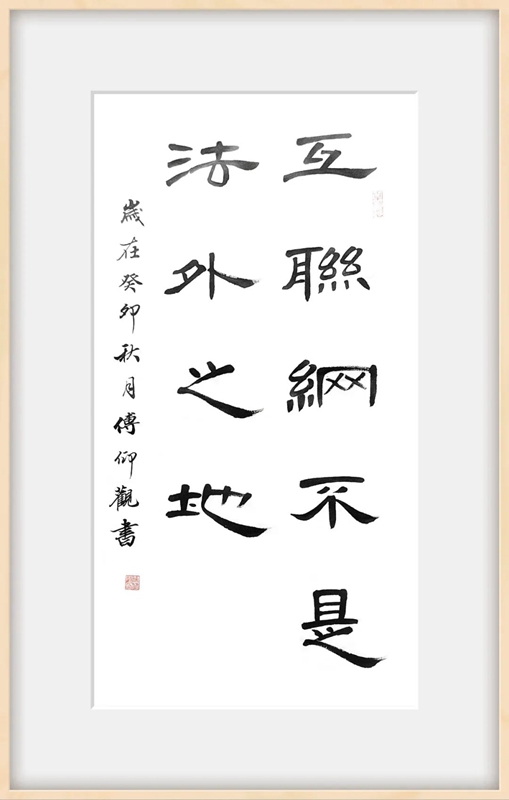 互聯網不是
法外之地
歲在癸卯秋月傅仰觀書